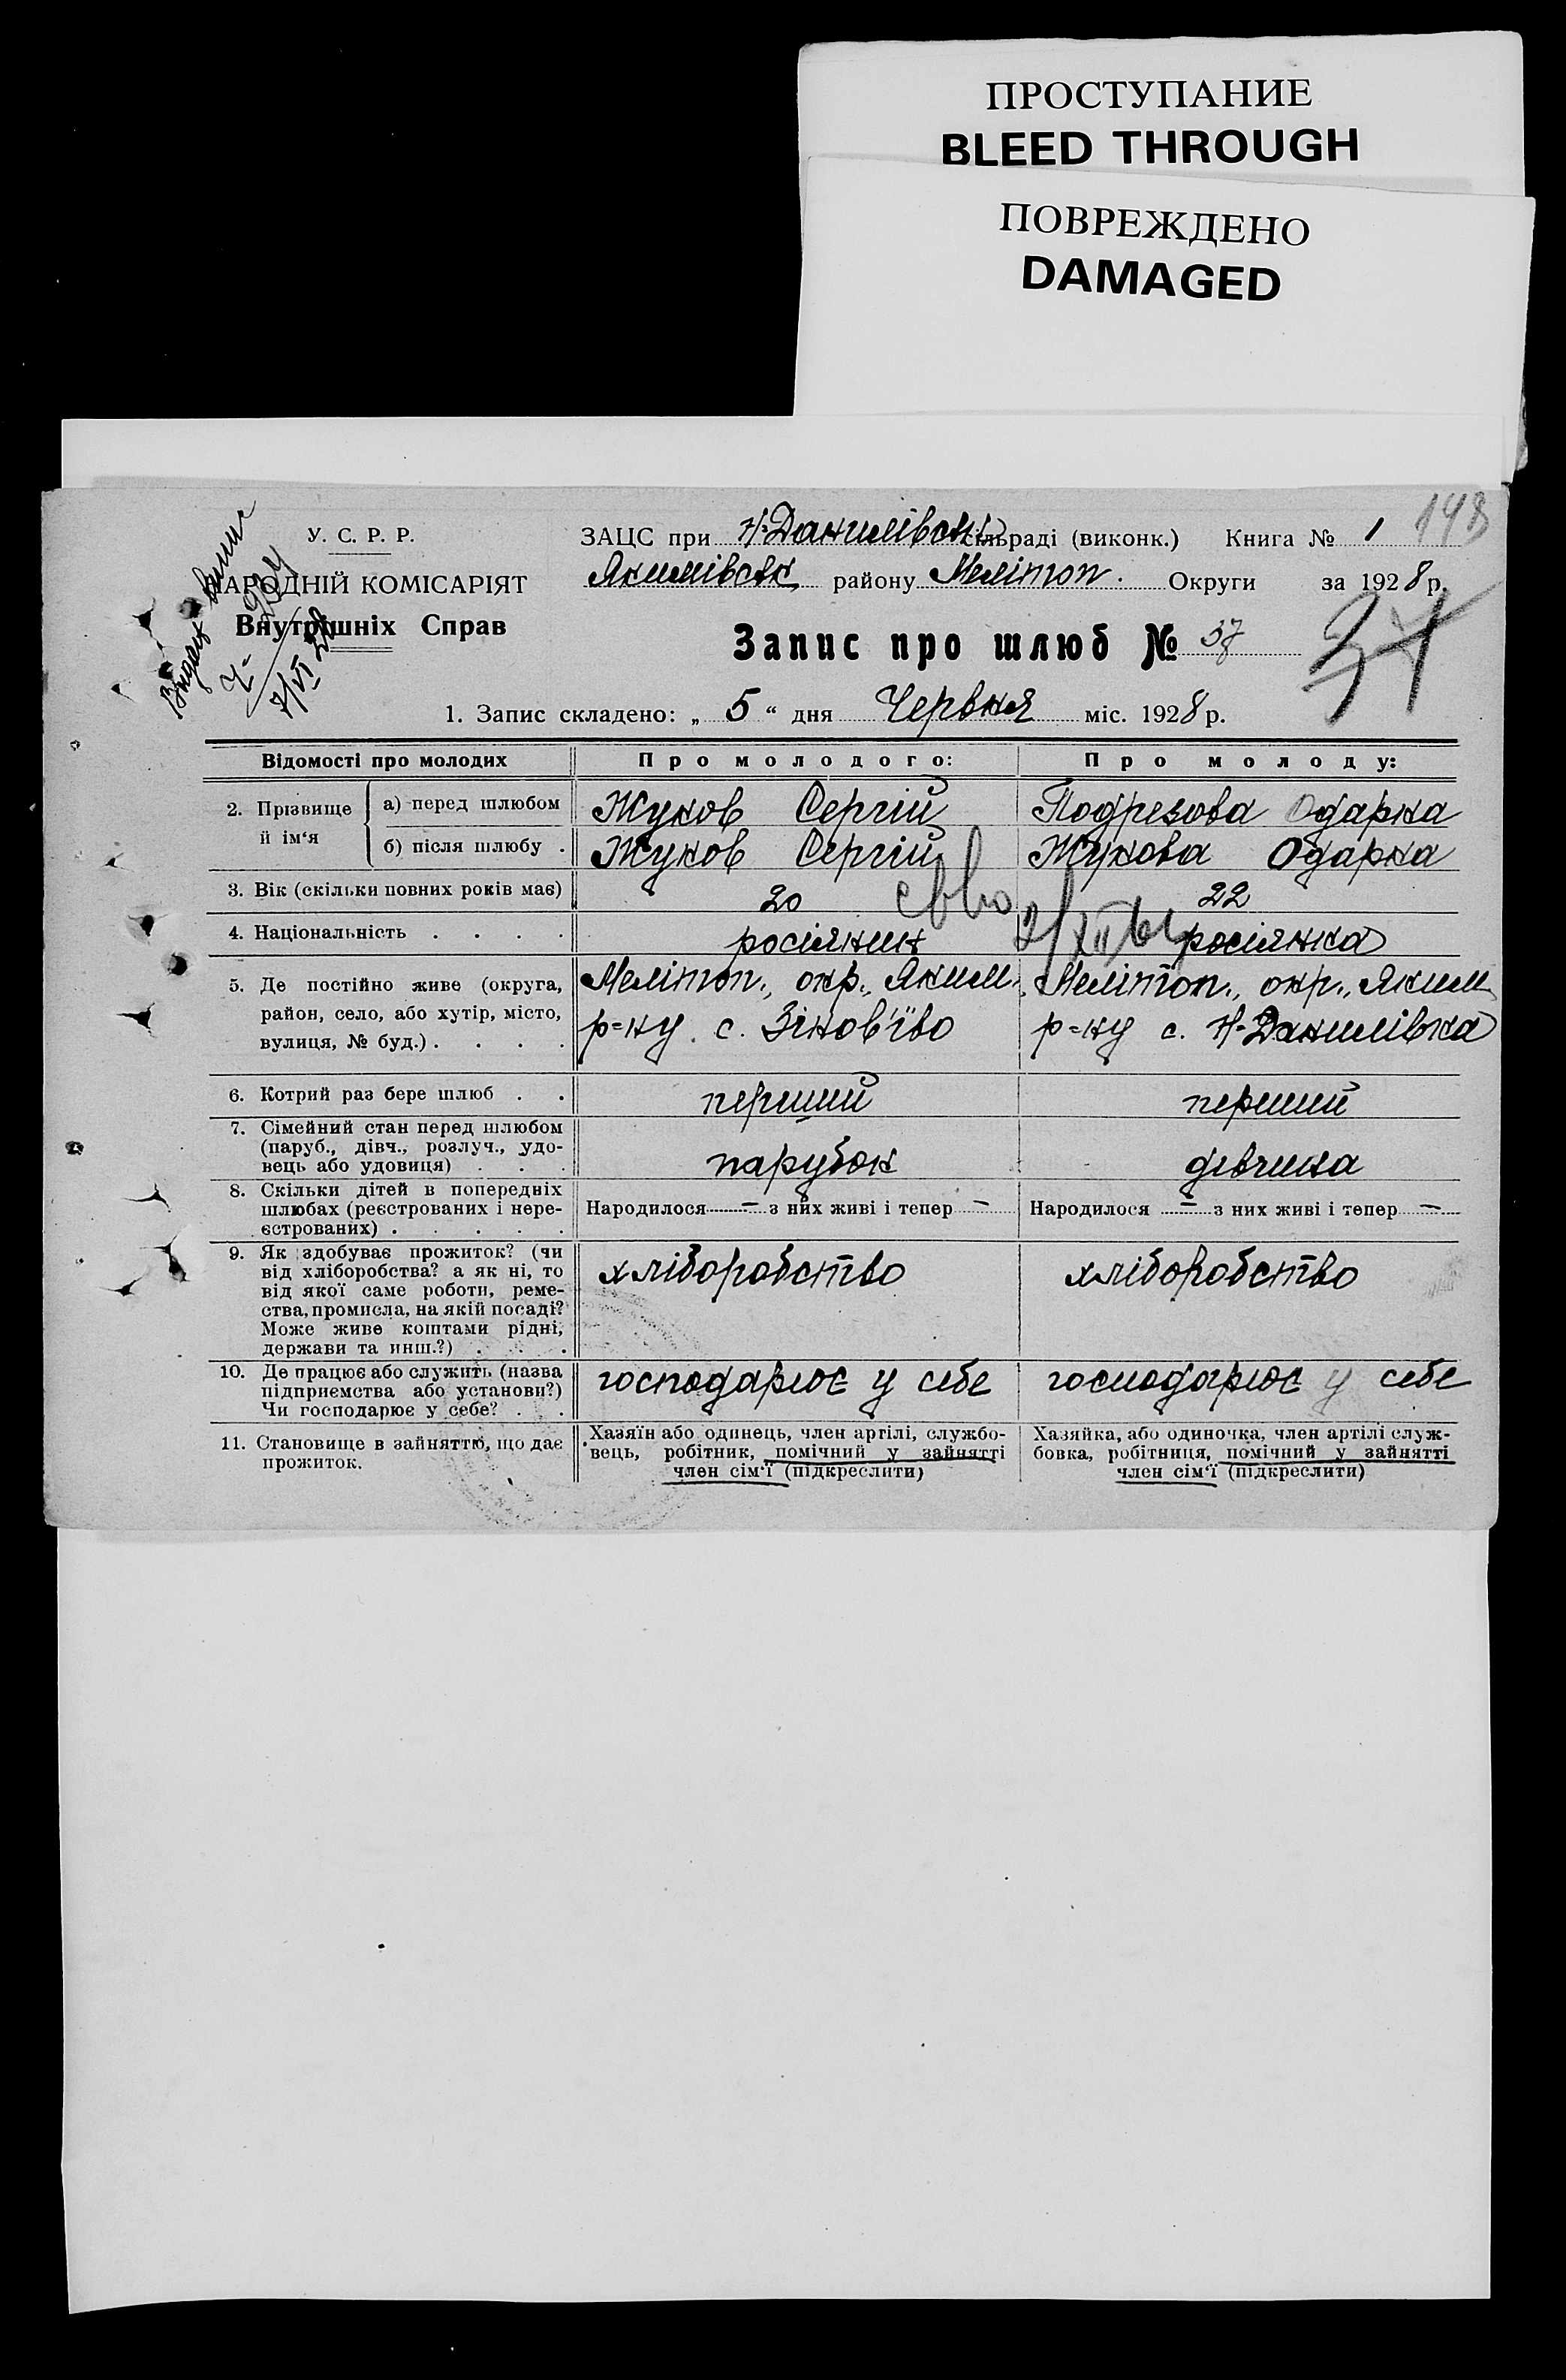 ПРОСТУПАНИЕ
BLEED THROUGH
ПОВРЕЖДЕНО
DAMAGED
148
У. С. Р. Р.
НАРОДНІЙ КОМІСАРІЯТ
Внутрішніх Справ
ЗАЦС при Н-Данилівськ сільраді (виконк.) Книга № 1
Якимівськ району Мелітоп. Округи за 1928 р.
Запис про шлюб № 37
1. Запис складено: „ 5 “ дня Червня міс. 1928 р.
Відомості про молодих Про молодого: Про молоду:
2. Прізвище й ім‘я
а) перед шлюбом Жуков Сергій Подрезова Одарка
б) після шлюбу . Жуков Сергій Жукова Одарка
3. Вік (скільки повних років має) 20 22
4. Національність . . . . росіянин росіянка
5. Де постійно живе (округа, район, село, або хутір, місто, вулиця, № буд.) . . . .
Меліпоп., окр., Яким.
р=ну. с. Зінов'їво
Меліпоп., окр., Яким
р=ну с. Н-Данилівка
6. Котрий раз бере шлюб . . перший перший
7. Сімейний стан перед шлюбом
(паруб., дівч., розлуч., удо-
вець або удовиця) . . . парубок дівчина
8. Скільки дітей в попередніх
шлюбах (реєстрованих і нере-
єстрованих) . . . . .
Народилося — з них живі і тепер —
Народилося — з них живі і тепер —
9. Як здобуває прожиток? (чи
від хліборобства? а як ні, то
від якої саме роботи, реме-
ства, промисла, на якій посаді?
Може живе коштами рідні,
держави та инш.?) . . .
хліборобство
хліборобство
10. Де працює або служить (назва
підприємства або установи?)
Чи господарює у себе? . .
господарює у себе
господарює у себе
11. Становище в зайняттю, що дає
прожиток.
Хазяїн або одинець, член артілі, службо-
вець, робітник, помічний у зайнятті
член сім‘ї (підкреслити)
Хазяйка, або одиночка, член артілі служ-
бовка, робітниця, помічний у зайнятті
член сім‘ї (підкреслити)